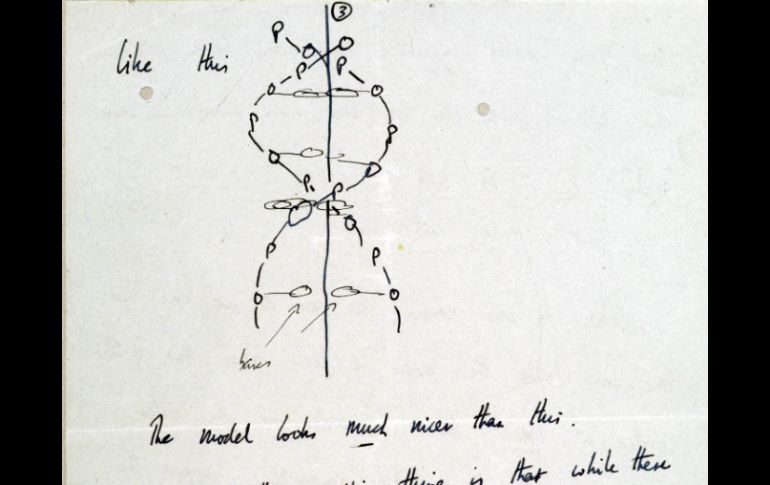 3
Like this
P
P P
P P
P P
P P
bases
The model looks much nicer than this.
thing is that while there